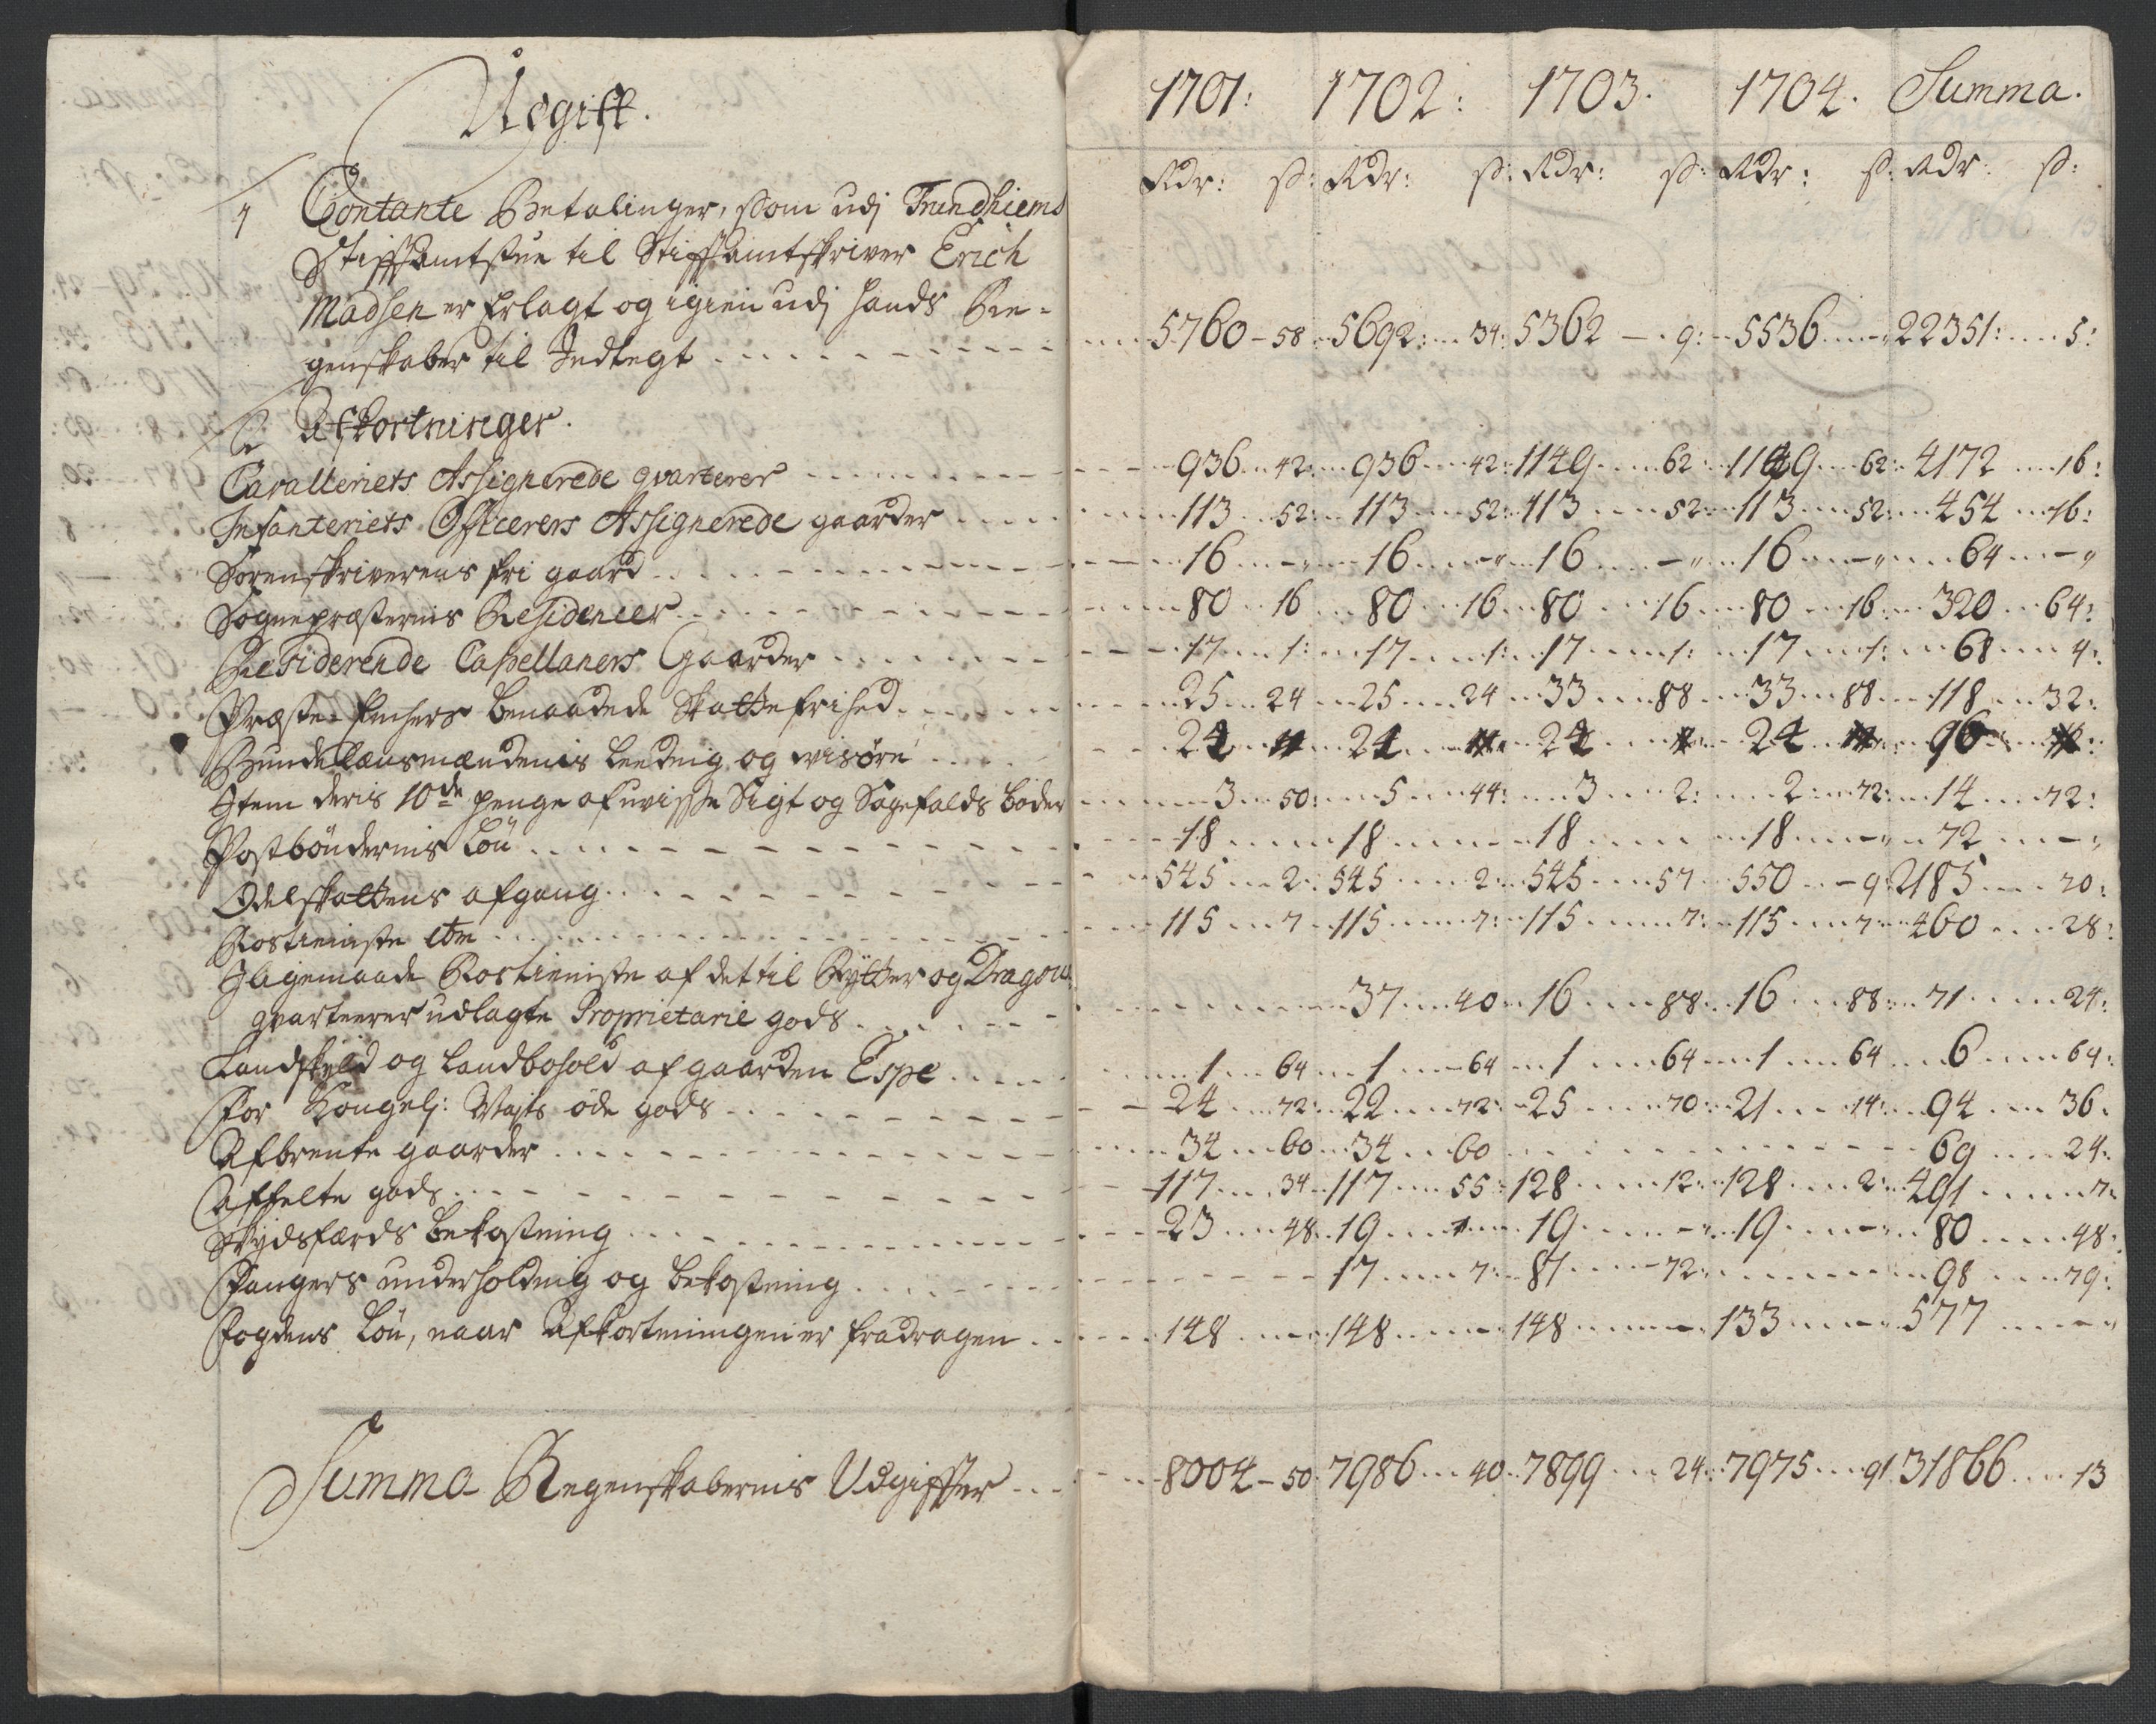 Udgift.
1701: 1702: 1703. 1704. Summa.
Rdr: ß: Rdr: ß: Rdr: ß: Rdr: ß: Rdr: ß:
1 Contante Betalinger, som udj Trundhiems
Stiftsamtstue til Stiftsamtskriver Erich
Madsen er Erlagt og igien udj hands Re-
genskaber til Indtegt 5760 - 58 5692: 34: 5362 - 9: 5536 - " 22351: 5:
2 Afkortninger.
Cavalleriets Assignerede qvarterer 936 42: 936 42: 1149 62: 1149 62: 4172 16:
Infanteriets Officerers Assignerede gaarder 113 52: 113 52: 113 52: 113 52: 454 16:
Sorenskriverens fri gaard 16 - " 16 - " 16 - " 16 - " 64 - "
Sognepræsternis Residencer 80 16 80 16 80 16 80 16: 320 64:
Residerende Capellaners Gaarder 17 1: 17 1: 17 1: 17 1: 68 4:
Præste-Enchers benaadede Skattefrihed 25 24 25 24 33 88 33 88 118 32:
Bundelænsmændenis leednig og 24 24 24 24 96
Item deris 10de penge af uvisse Sigt og Sagefalds bøder 3 50: 5 44: 3 2: 2 72: 14 72:
Postbøndernis Løn 18 18 18 18 - " 72 - "
Odelskattens afgang 545 2: 545 2: 545 57 550 - 9: 2185 70:
Rostieniste etc 115 7 115 7: 115 7: 115 7: 460 28:
Ligemaade Rostieniste af det til Rytter og Dragon
qvarteerer udlagte Proprietarie gods 37 40 16 88 16 88: 71 24:
Landskyld og Landbohold af gaarden Espe 1 64 1 64 1 64 1 64 6 64:
For Kongelj: Mayts øde gods 24 72: 22 72: 25 70: 21 14: 94 36.
Afbrente gaarder 34 60 34 60 69 24:
Affelte gods 117 34 117 55: 128 12: 128 2: 491 7:
Skydsfærds bekostning 23 48 19 19 - " 19 - " 80 48:
Fangers underholdnig og bekostning 17 7: 81 72: 98 79:
Fogdens Løn, naar Afkortningen er fradragen 148 148 148 133 577 - "
Summa Regenskabernis Udgiffter 8004 - 50: 7986 40 7899 24: 7975 91 31866 13